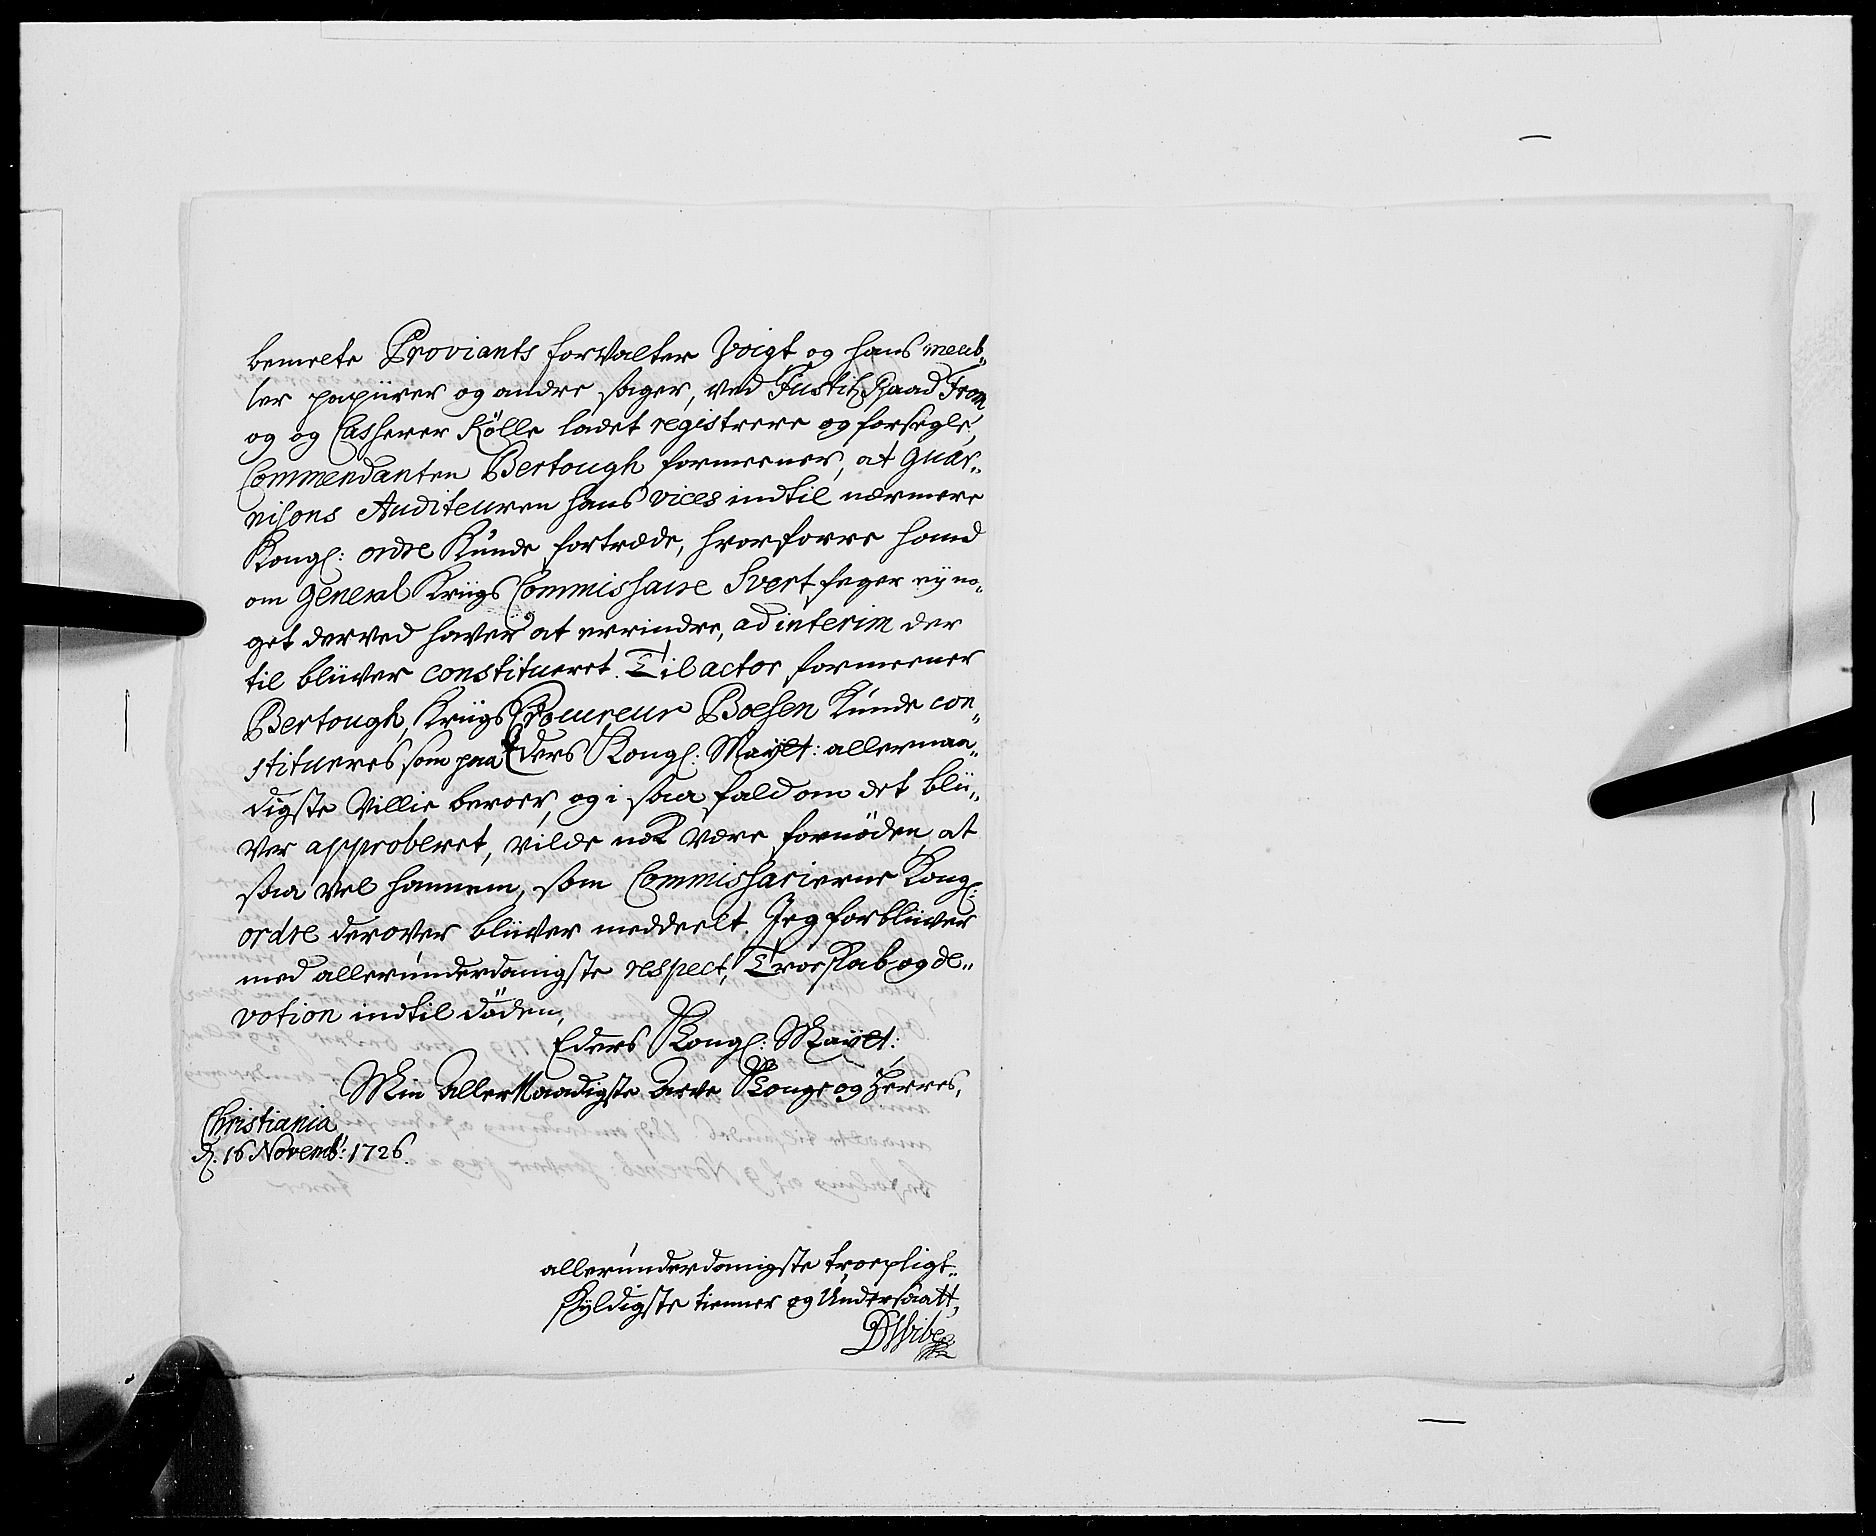 bemelte Proviants forvalter Voigt og hans meub„
ler papiirer og andre sager, ved Justitz Raad From
og og Casserer Kölle ladet registrere og forsegle,
Commendanten Bertough formeener, at Guar„
nisons Auditeuren hans vices indtil nærmere
Kongl: ordre kunde fortræde, hvorforre hand
om General Kriigs Commissaire Svertfeger ej no„
get derved haver at errindre, ad interim der
til bliver constitueret. Til actor formeener
Bertough, Kriigs Procureur Boesen kunde con„
stitueres som paa Eders Kongl: Mayst: allernaa„
digste Villie beroer, og i saa fald om det blii„
ver approberet, vilde nok være fornöden, at
saa vel hannem, som Commissarierne Kongl:
ordre derover bliver meddeelt. Jeg forbliver
med allerunderdanigste respect, Troeskab og de„
votion indtil döden,
Eders Kongl: Mayst:
Min Aller Naadigste Arve Konge og Herres,
Christiania
d. 16 Novemb: 1726.
allerunderdanigste troepligt„
skyldigste tienner og Undersaatt,
DWibe